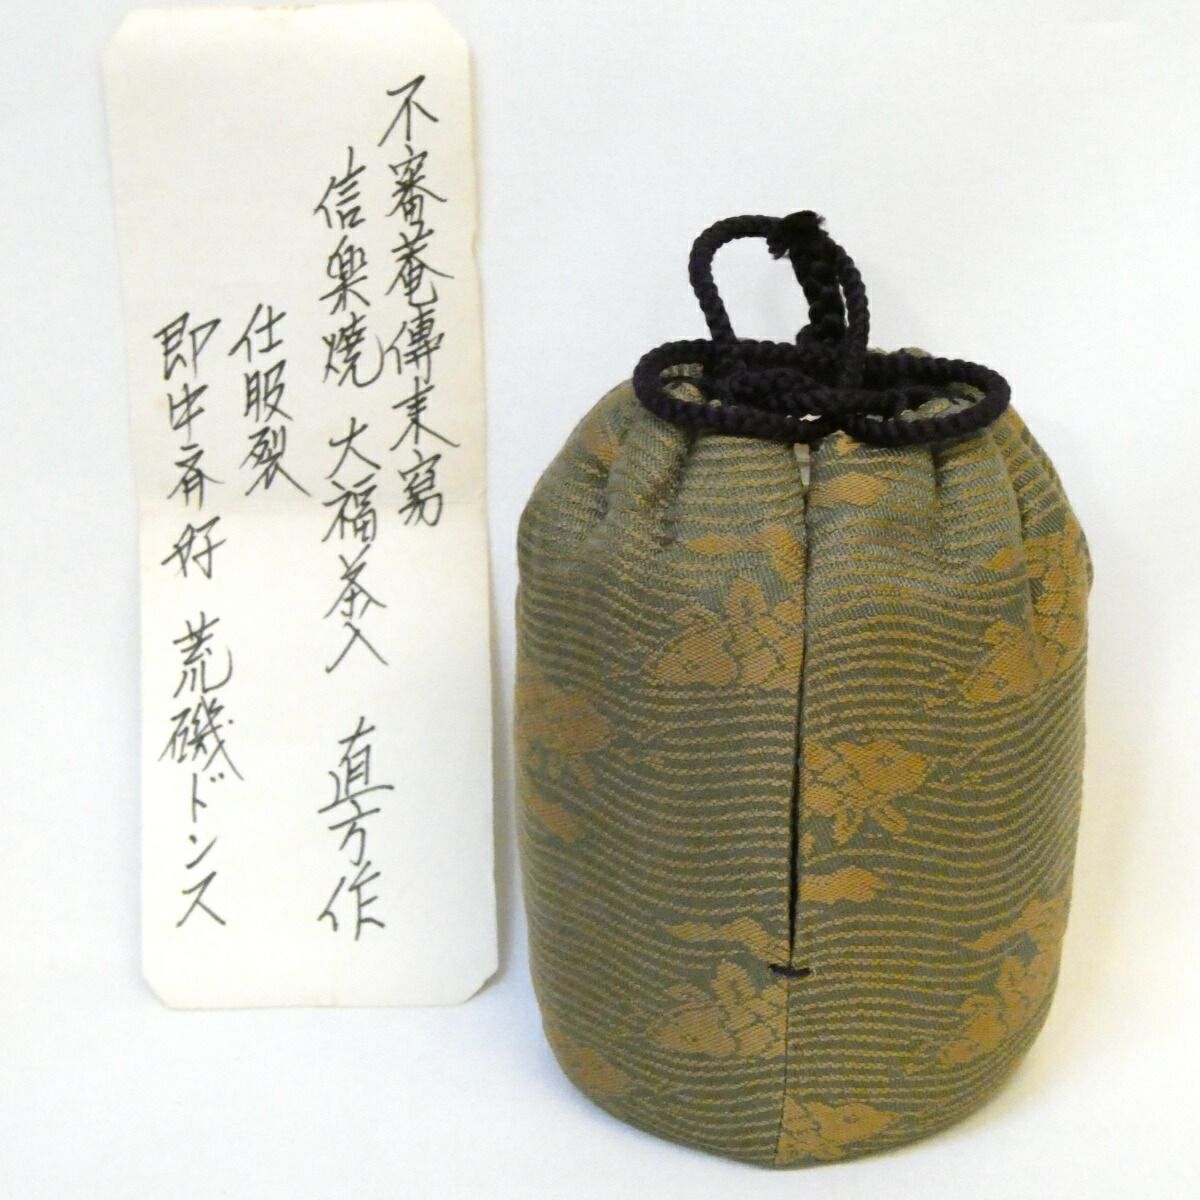 不審菴傳来寫
信楽燒 大福茶入 直方作
仕服裂
即中斎好 荒磯ドンス